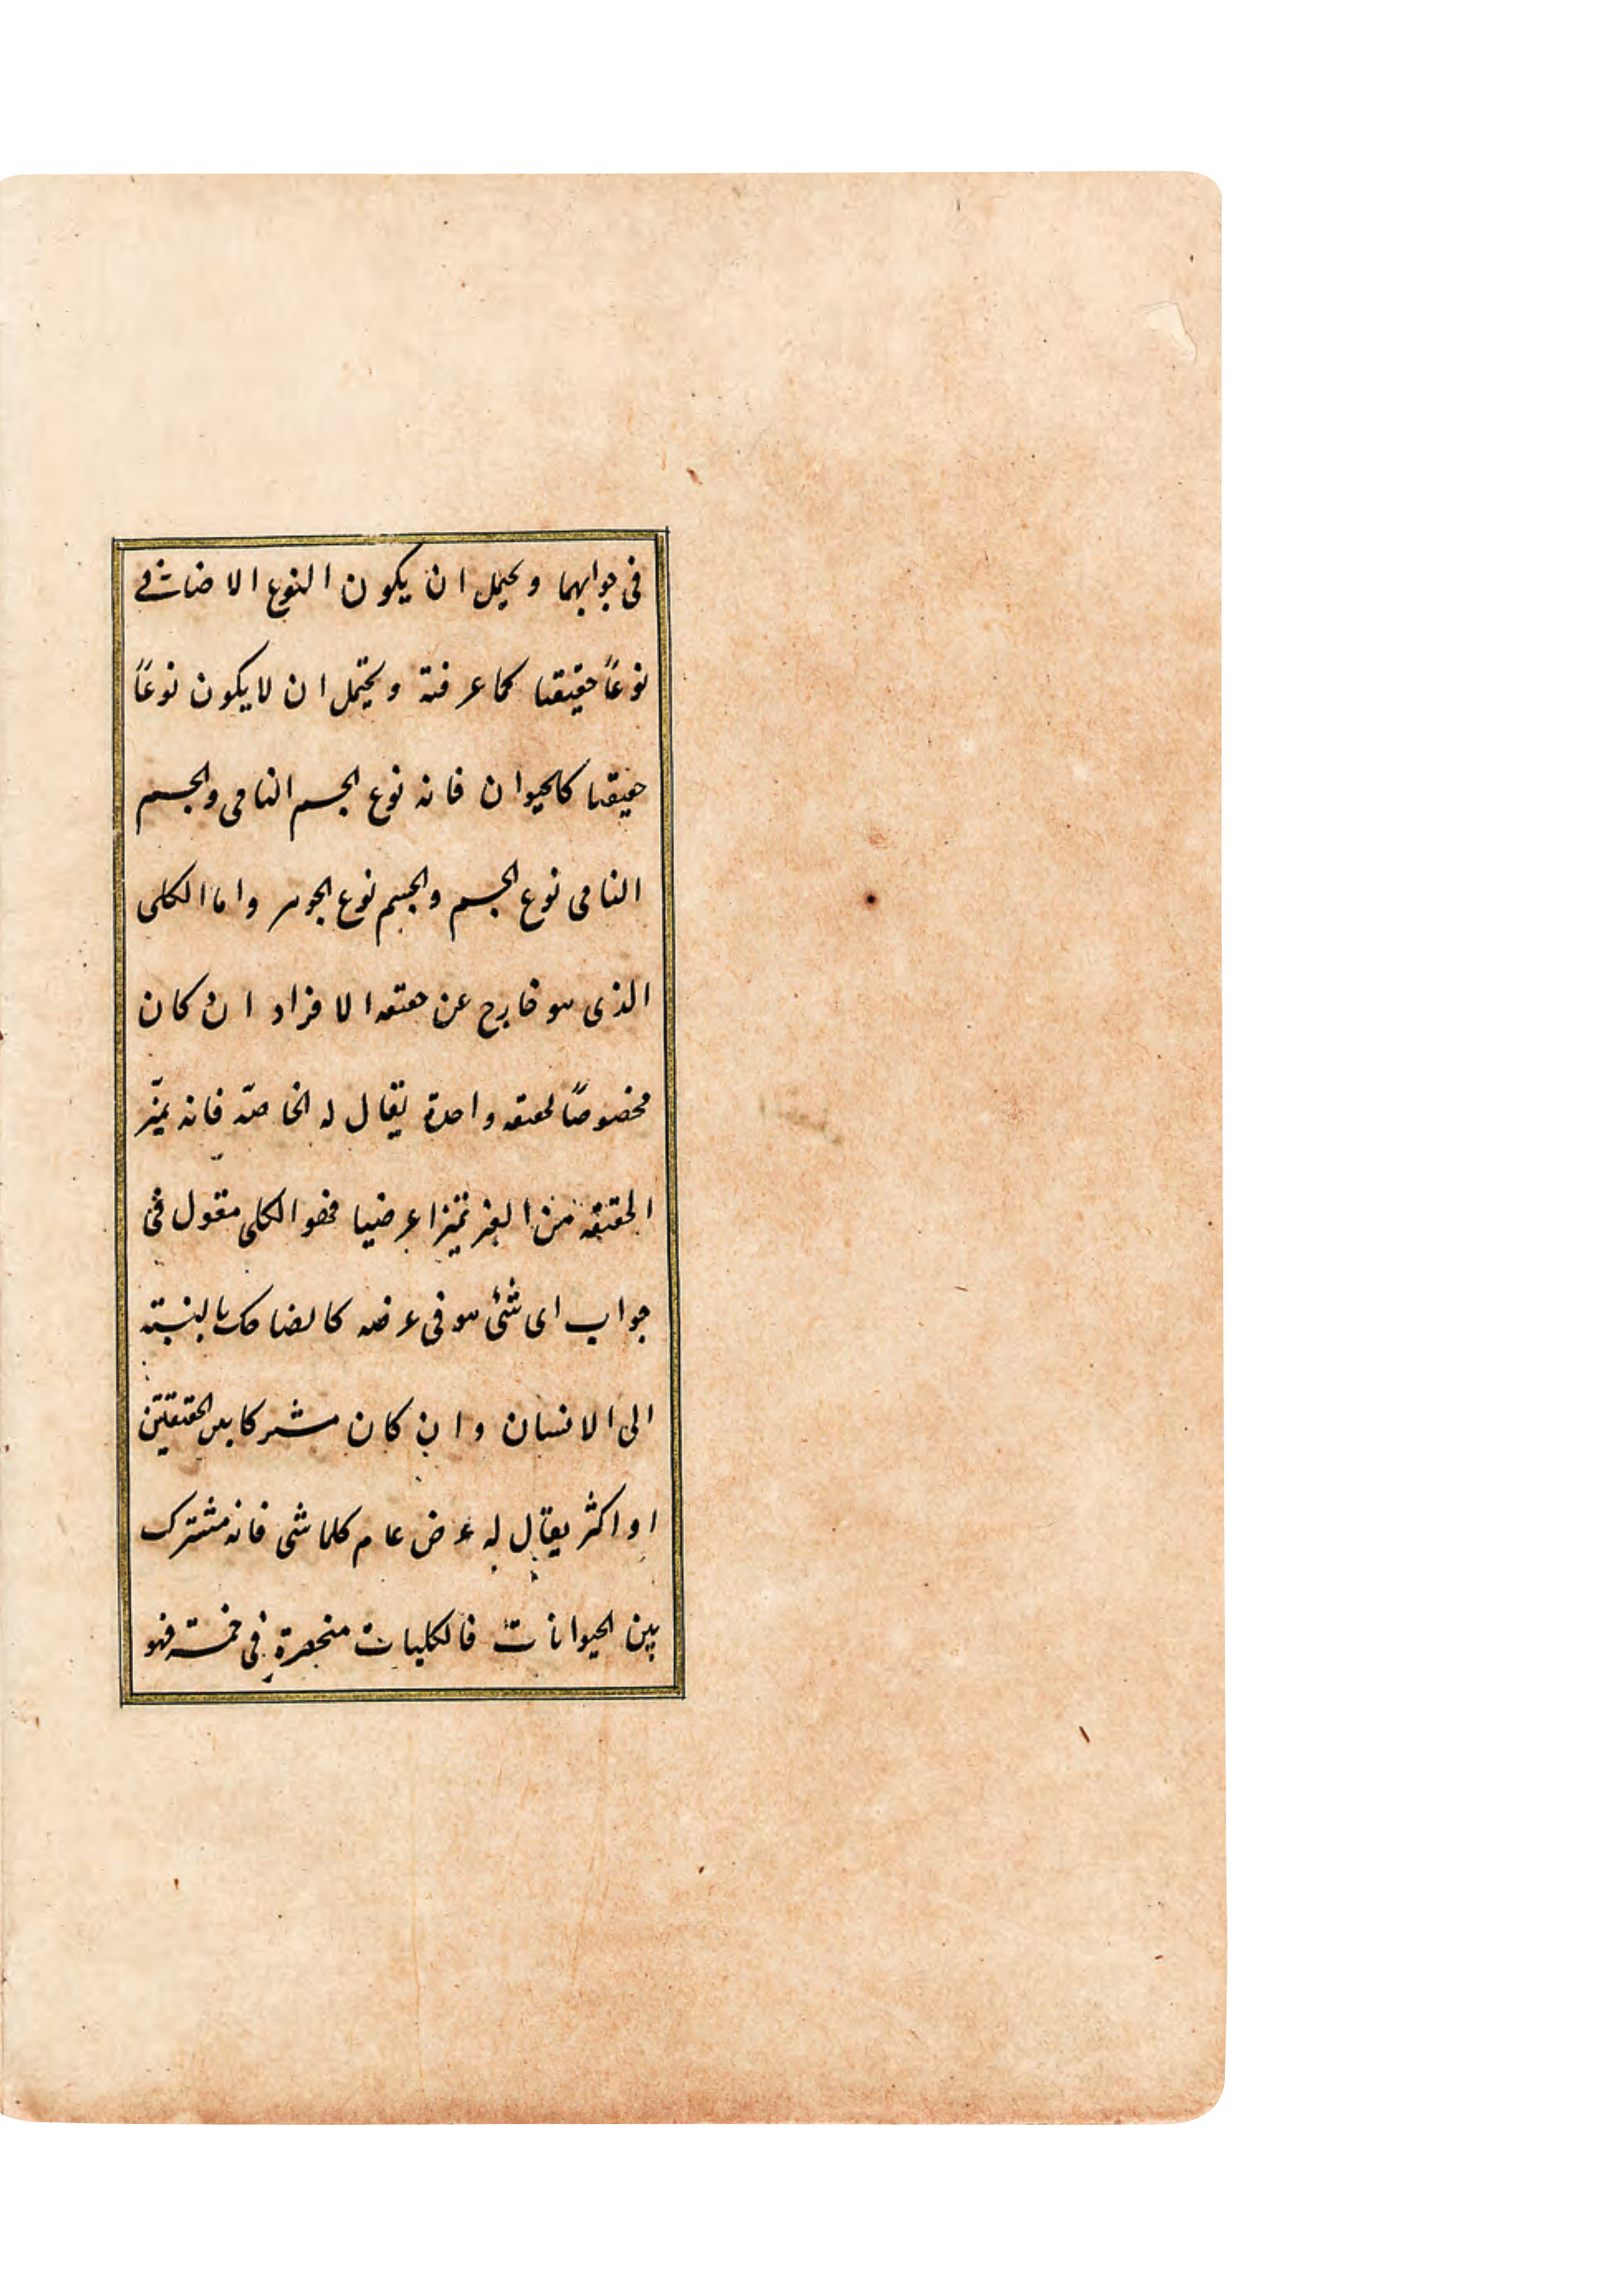 فى جوابهما ويحمل ان يكون النوع الاضافى
نوعاً حقيقيا كما عرفته ويحتمل ان لا يكون نوعاً
حقيقيا كالحيوان فانه نوع الجسم النامى والجسم
النامى نوع الجسم والجسم نوع الجوهر واما الكلى
الذى هو خارج عن حقيقه الافراد ان كان
مخصوصاً لحقيقه واحدة يقال له الخاصّه فانه يميّز
الحقيقه من الغير تميزا عرضيا فهو الكلى مقول فى
جواب اى شئ هو فى عرضه كالضاحك بالنسبته
الى الانسان وان كان مشتركا بين الحقيقتين
او اكثر يقال له عرض عام كالماشى فانه مشترك
بين الحيوانات فالكليات منحصرة فى خمسته فهو